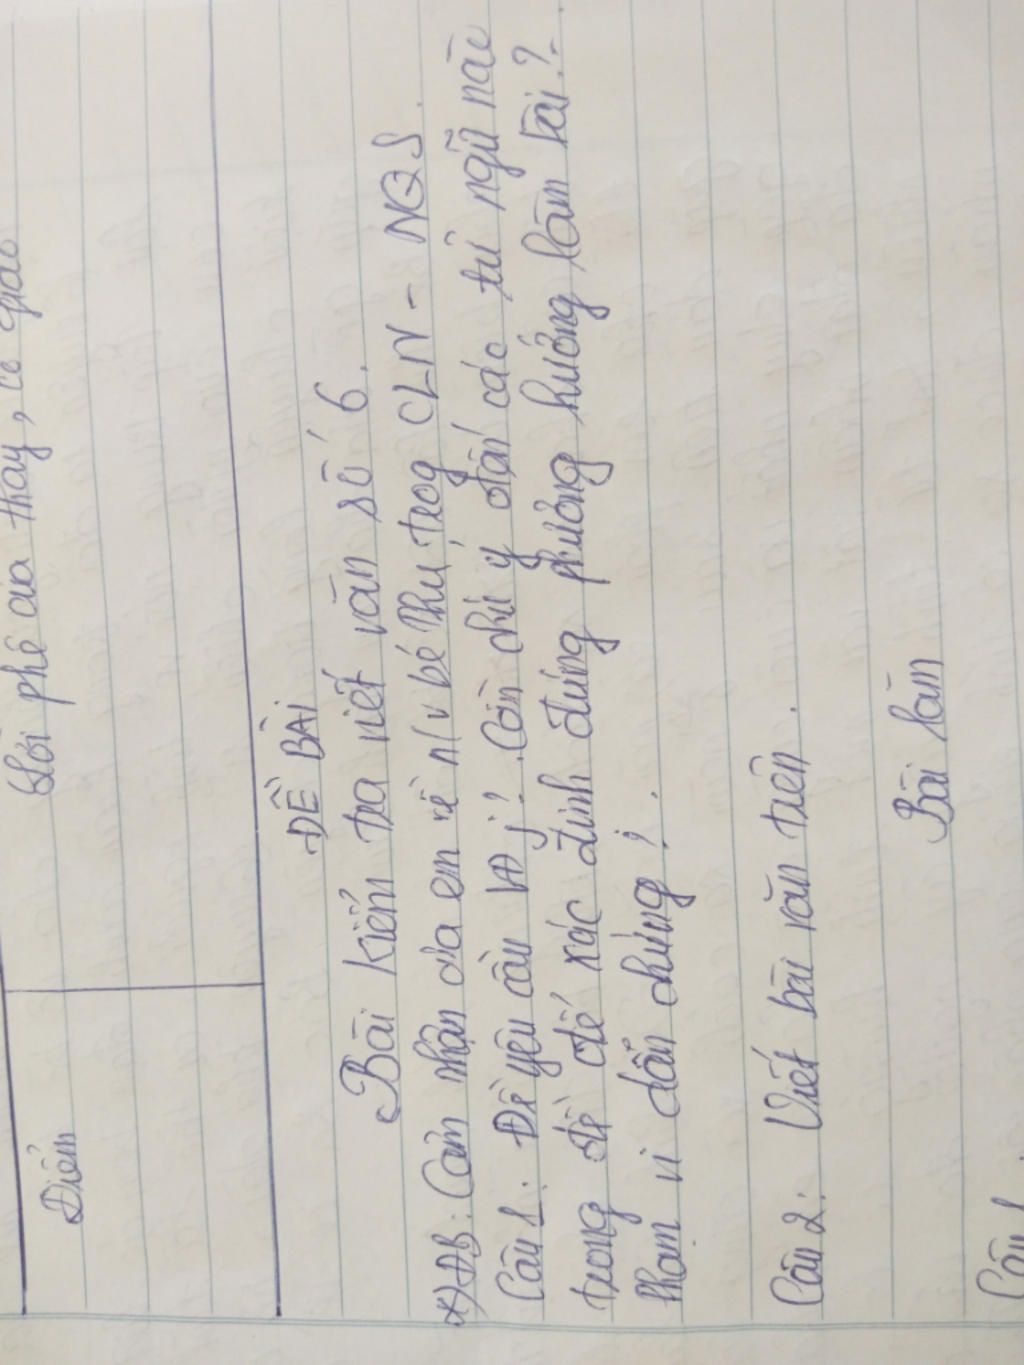 Lời phê của thầy, cô giáo
Điểm
ĐỀ BÀI
Bài kiểm tra viết văn số 6.
*) ĐB: Cảm nhận của em về n/v bé Thu trog CLN - NQS.
Câu 1: Đề yêu cầu VĐ j? Cần chú ý đến các từ ngữ nào
trong đề để xác định đúng phương hướng làm bài?
Phạm vi dẫn chứng?
Câu 2: Viết bài văn trên.
Bài làm
Câu 1: